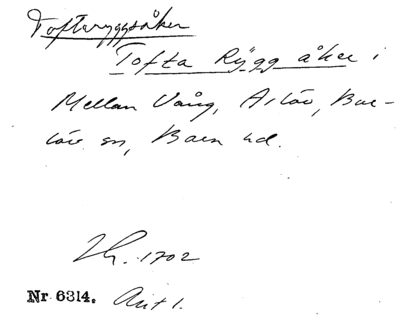 Tofteryggsåker
Tofta Rÿgg åker i
Mellan Vång, Arlöv, Bur-
löv sn, Bara hd.
Lh. 1702
Nr 6314. Avt 1.